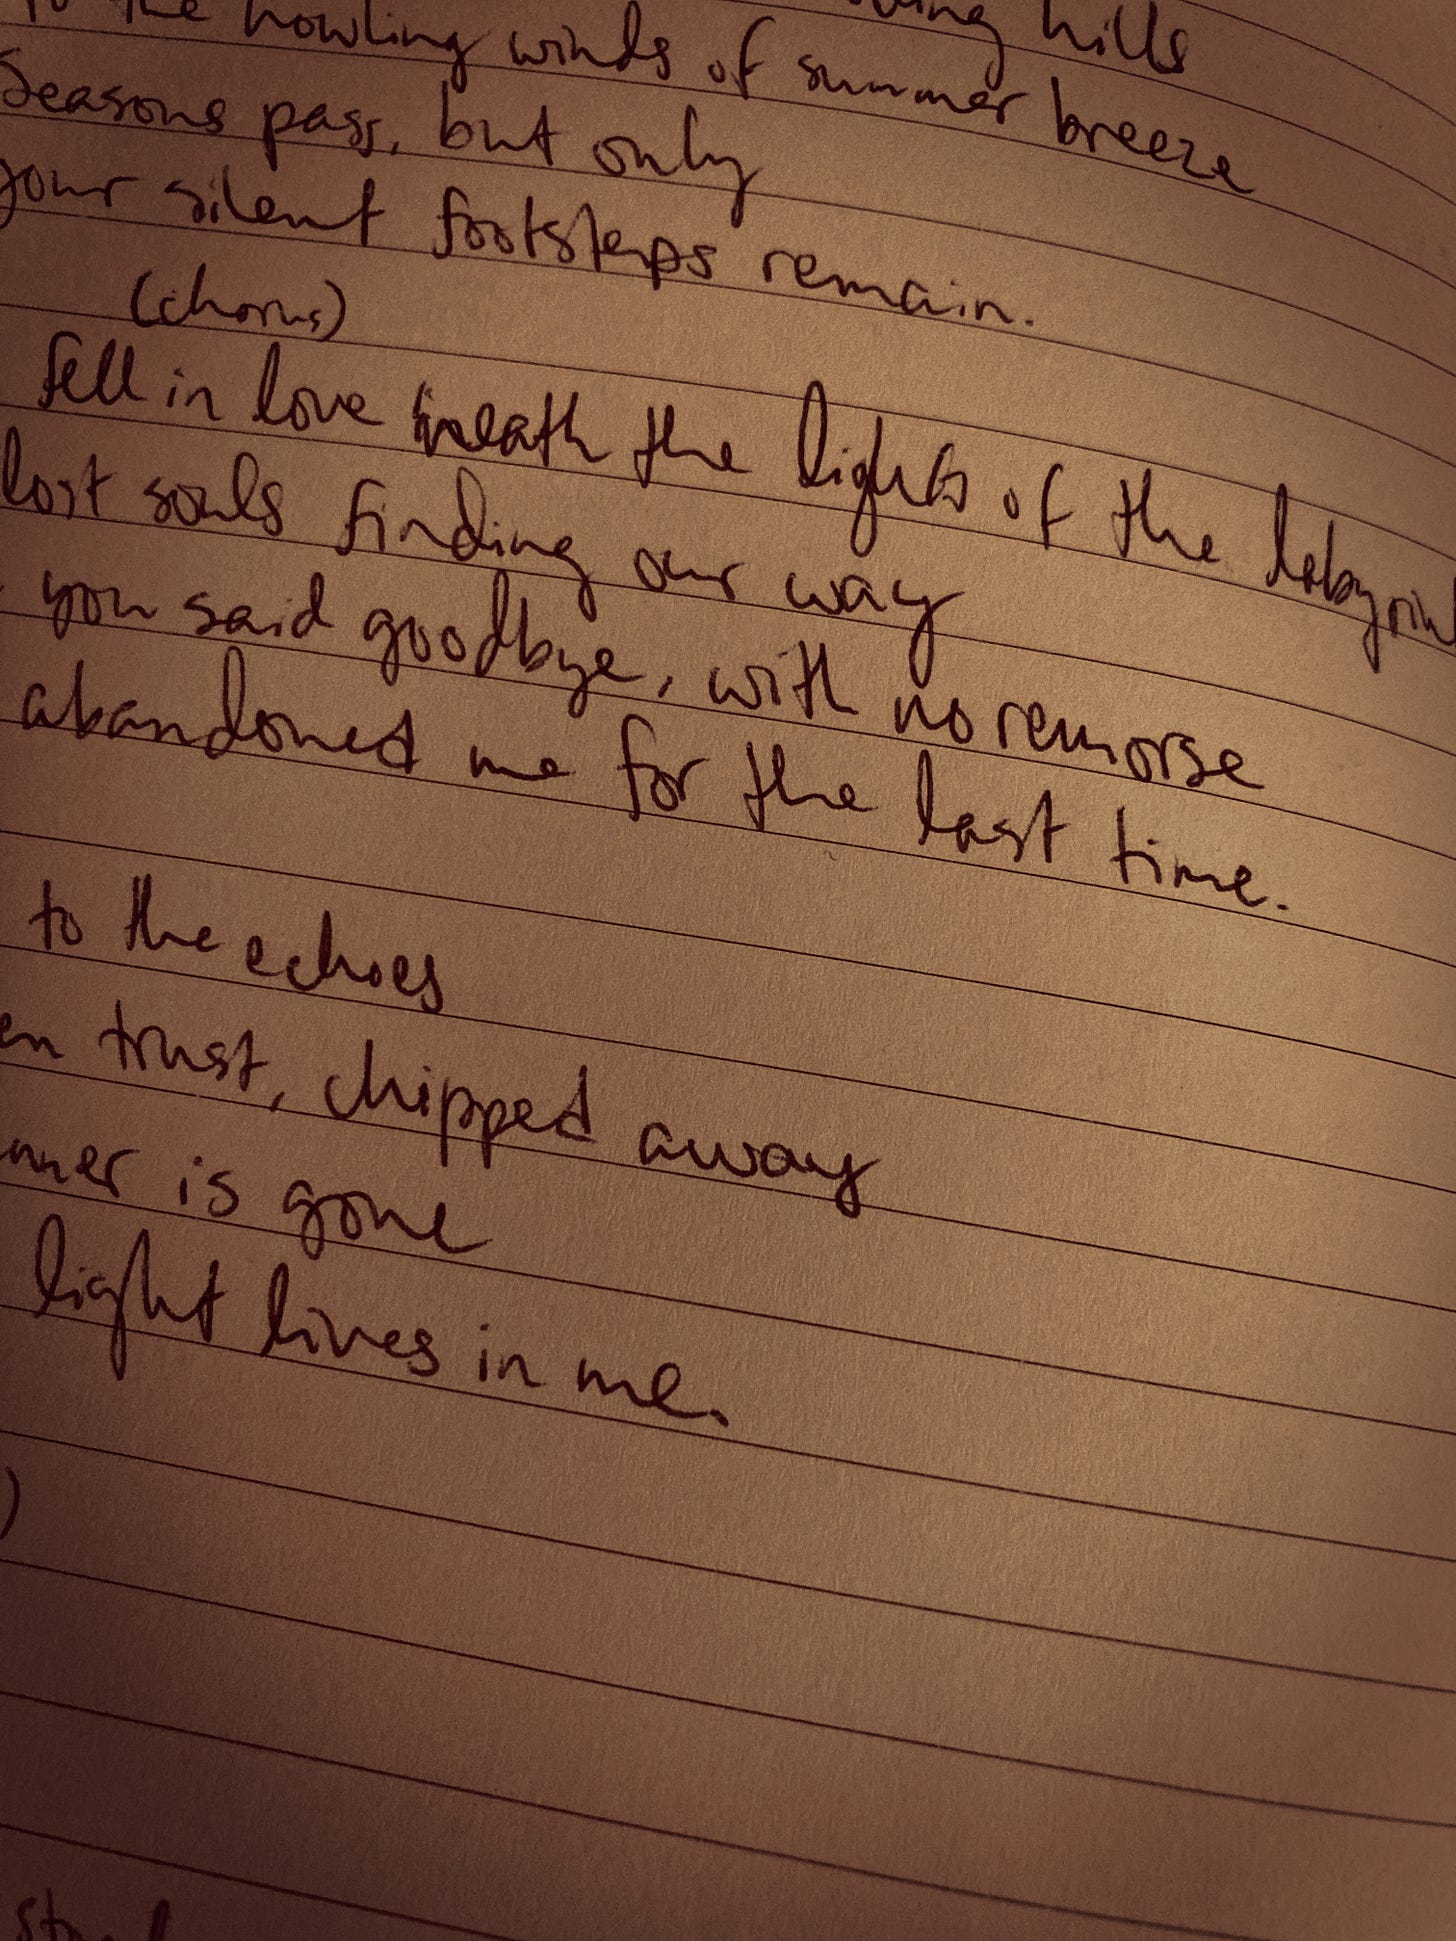 hills
to the howling winds of summer breeze
Seasons pass, but only
your silent footsteps remain.
(chorus)
fell in love neath the lights of the
lost souls finding our way
you said goodbye, with no remorse
abandoned me for the last time.
to the echoes
trust, chipped away
is gone
light lives in me.
)